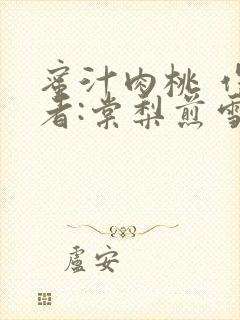 蜜汁肉桃 作
者:棠梨煎雪
盧安